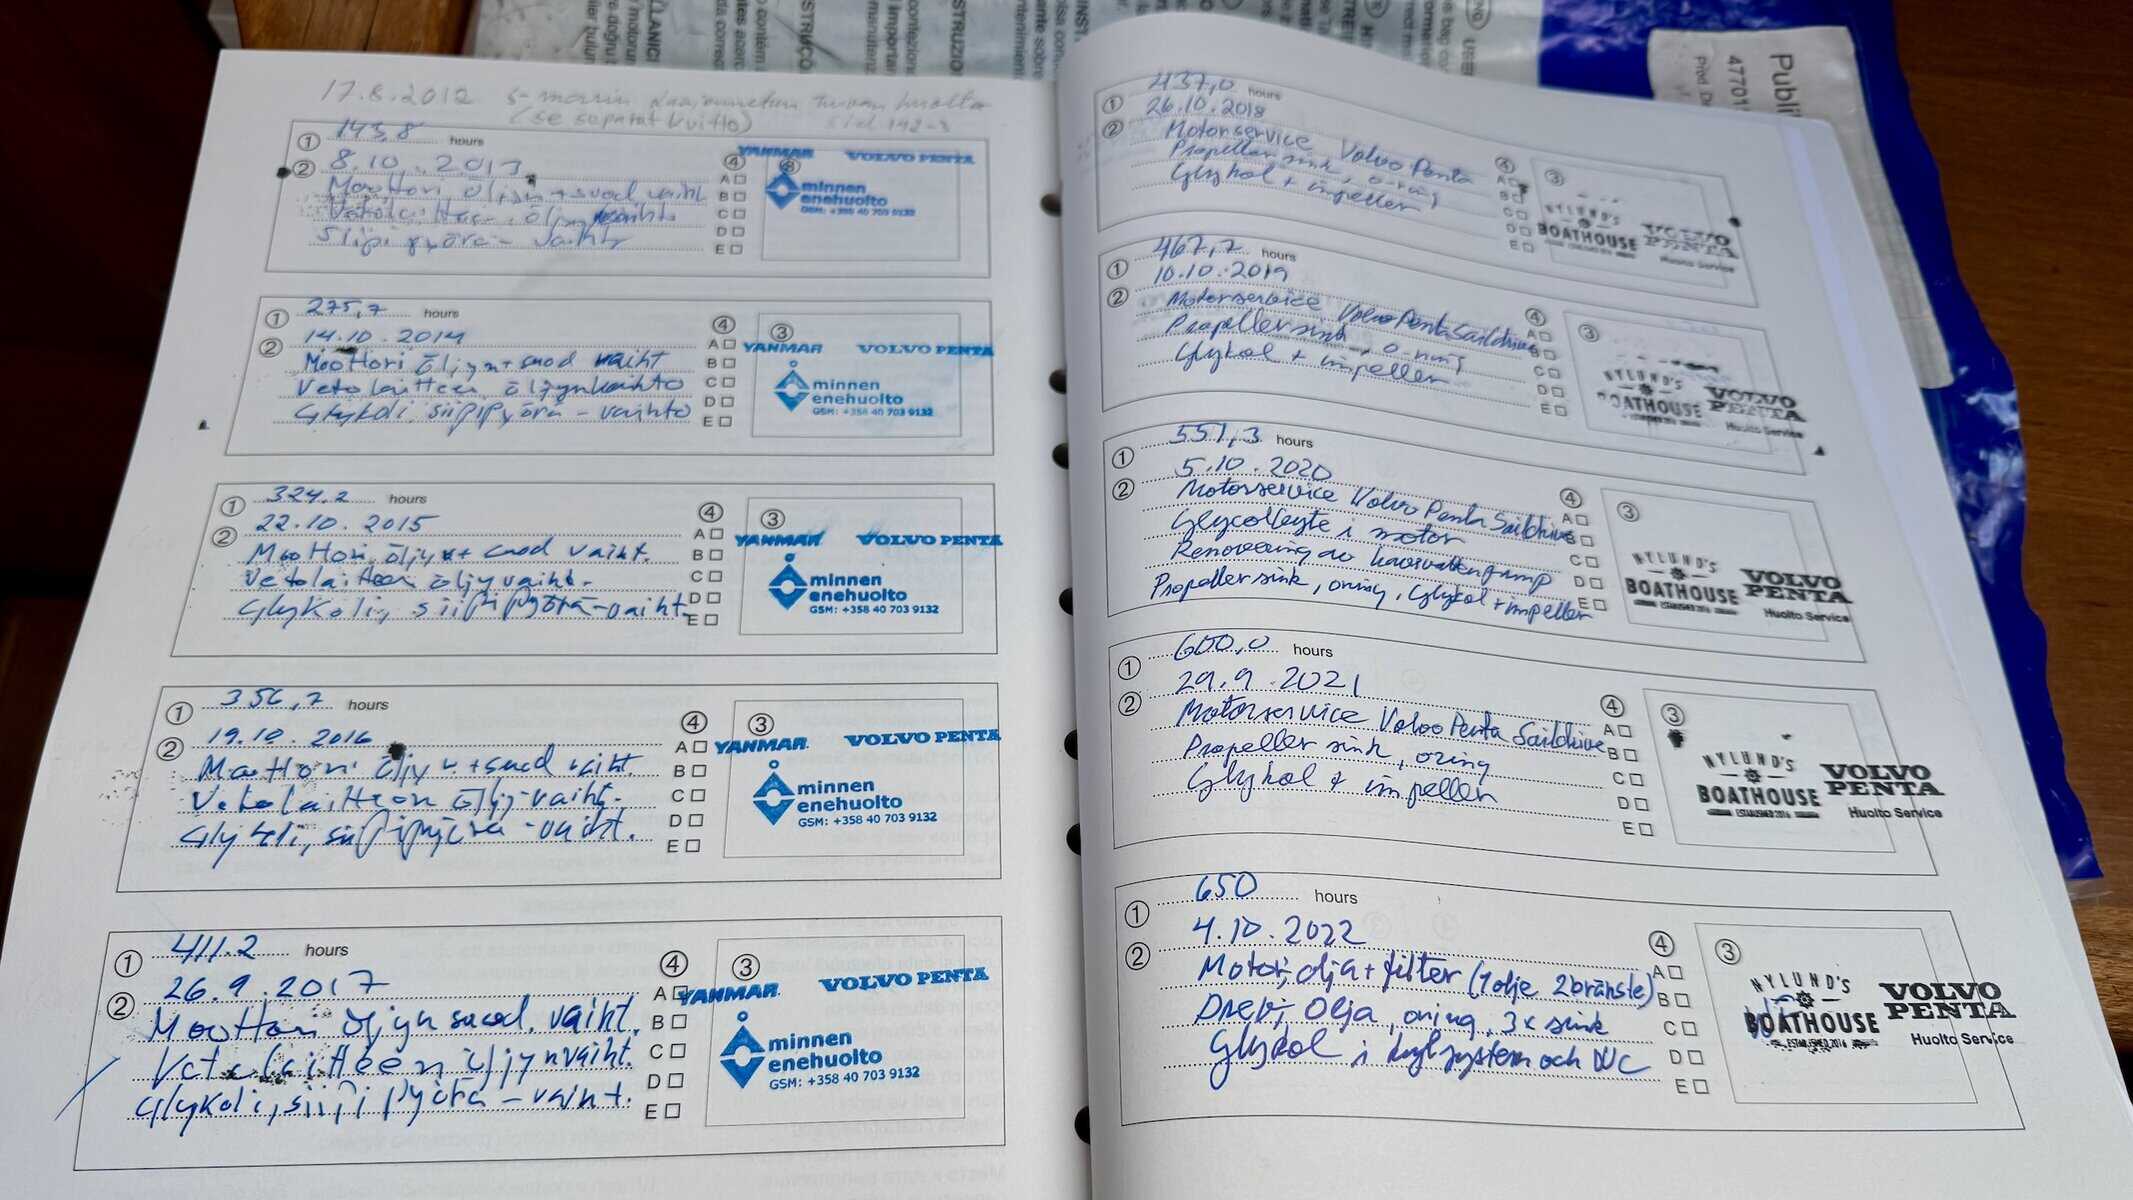 17.8.2012 s-marin
(se separat kvitto) sid 142-3
① 143,8 hours
② 8.10.2013
Moottori öljyn + suod vaiht
Vetolaitteen öljyn vaihto
Siipipyörä - vaihto
④
A
B
C
D
E
YANMAR VOLVO PENTA
minnen
enehuolto
GSM: +358 40 703 9132
① 275,7 hours
② 14.10.2014
Moottori öljyn + suod vaiht
Vetolaitteen öljynvaihto
Glykoli, siipipyörä - vaihto
④
A
B
C
D
E
③
YANMAR VOLVO PENTA
minnen
enehuolto
GSM: +358 40 703 9132
① 324.2 hours
② 22.10.2015
Moottori öljy + suod vaiht.
Vetolaitteen öljyvaiht.
Glykoli, siipipyörä - vaiht.
④
A
B
C
D
E
③
YANMAR VOLVO PENTA
minnen
enehuolto
GSM: +358 40 703 9132
① 356,7 hours
② 19.10.2016
Moottori öljyn + suod vaiht.
Vetolaitteen öljyvaiht.
Glykoli, siipipyörä - vaiht.
④
A
B
C
D
E
③
YANMAR VOLVO PENTA
minnen
enehuolto
GSM: +358 40 703 9132
① 411.2 hours
② 26.9.2017
Moottori öljyn suod. vaiht.
Vetolaitteen öljynvaiht.
Glykoli, siipipyörä - vaiht.
④
A
B
C
D
E
③
YANMAR VOLVO PENTA
minnen
enehuolto
GSM: +358 40 703 9132
① 437,0 hours
② 26.10.2018
Motorservice Volvo Penta
Propeller sink, o-ring
Glykol + impeller
④
A
B
C
D
E
③
NYLUND'S
BOATHOUSE
VOLVO
PENTA
Huolto Service
① 467,7 hours
② 10.10.2019
Motorservice Volvo Penta Saildrive
Propeller sink, o-ring
Glykol + impeller
④
A
B
C
D
E
③
NYLUND'S
BOATHOUSE
VOLVO
PENTA
Huolto Service
① 551,3 hours
② 5.10.2020
Motorservice Volvo Penta Saildrive
Glycolbyte i motor
Renovering av havsvattenpump
Propeller sink, oring, Glykol + impeller
④
A
B
C
D
E
③
NYLUND'S
BOATHOUSE
ESTABLISHED 2016
VOLVO
PENTA
Huolto Service
① 600,0 hours
② 29.9.2021
Motorservice Volvo Penta Saildrive
Propeller sink, oring
Glykol + impeller
④
A
B
C
D
E
③
NYLUND'S
BOATHOUSE
ESTABLISHED 2016
VOLVO
PENTA
Huolto Service
① 650 hours
② 4.10.2022
Motor; olja + filter (1 olje 2 bränsle)
Drev; Olja, oring, 3x sink
Glykol i kylsystem och WC
④
A
B
C
D
E
③
NYLUND'S
BOATHOUSE
ESTABLISHED 2016
VOLVO
PENTA
Huolto Service
Publi
47701